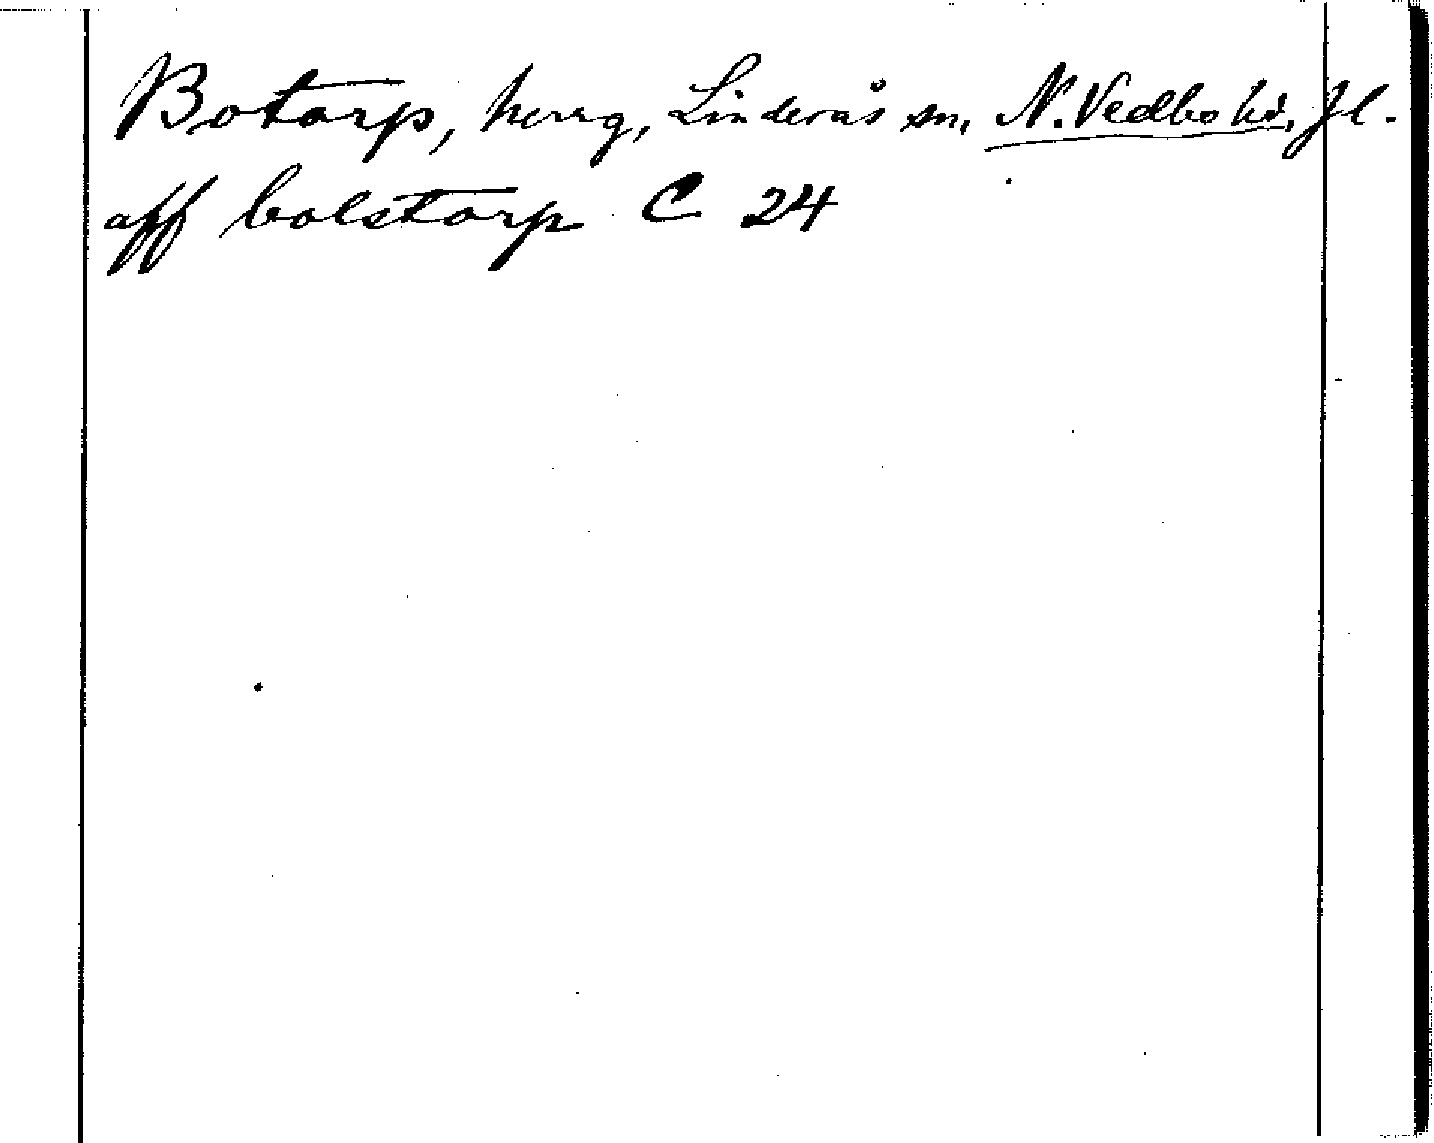 Botarp, herrg, Linderås sn, N. Vedbo hd, Jl.
aff bolstarp C 24